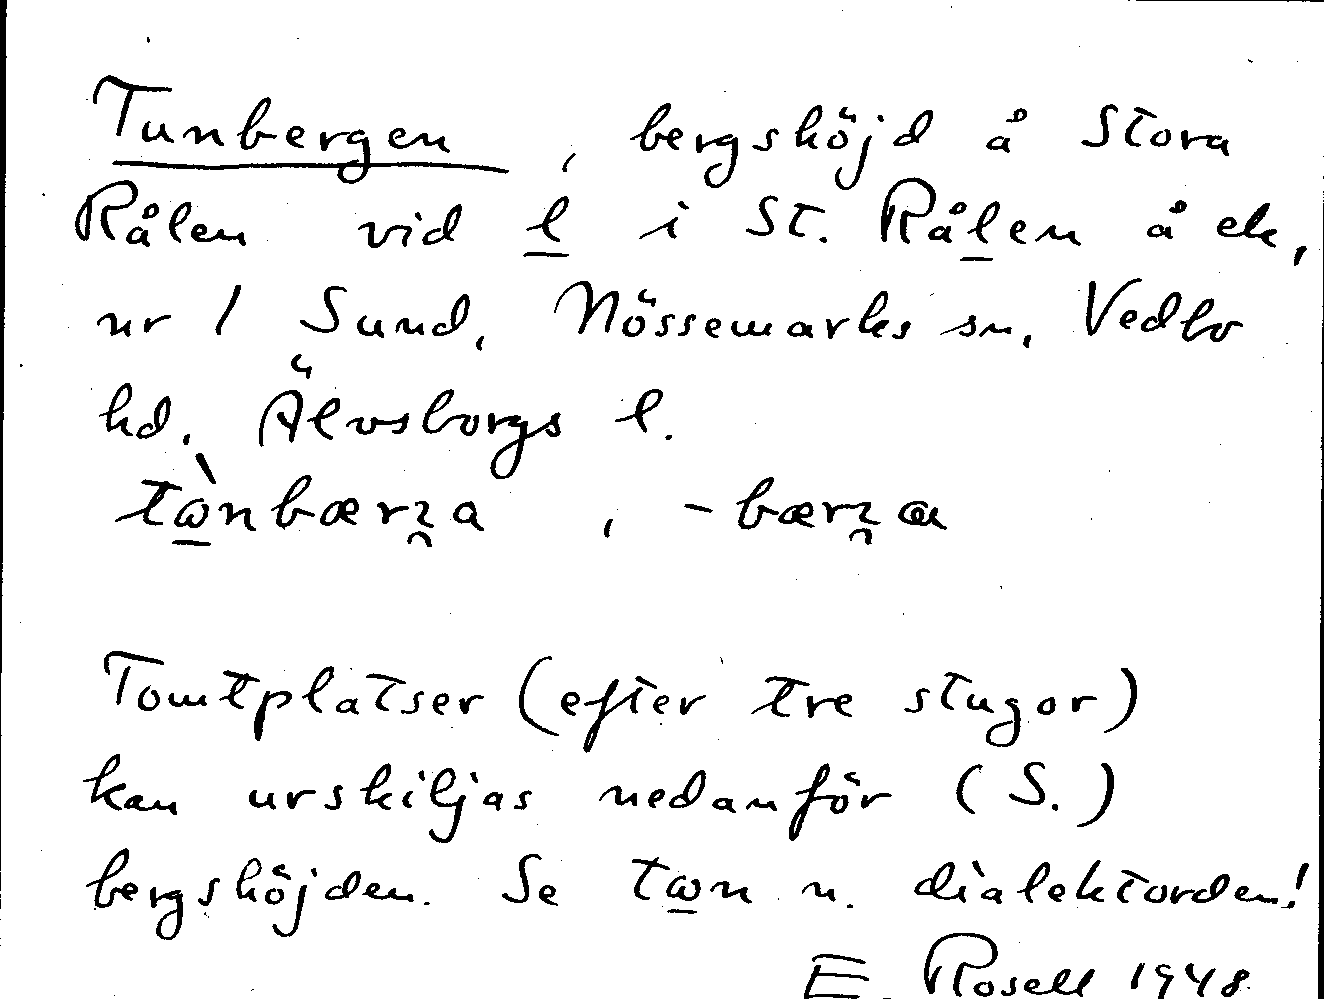 Tunbergen, bergshöjd å Stora
Rålen vid l i St. Rålen å ek,
nr 1 Sund, Nössemarks sn, Vedbo
hd, Älvsborgs l.
tὼnbærꝛ̯a, -bærꝛ̯æ
Tomtplatser (efter tre stugor)
kan urskiljas nedanför (S.)
bergshöjden. Se tωn n. dialektorden!
E. Rosell 1948.